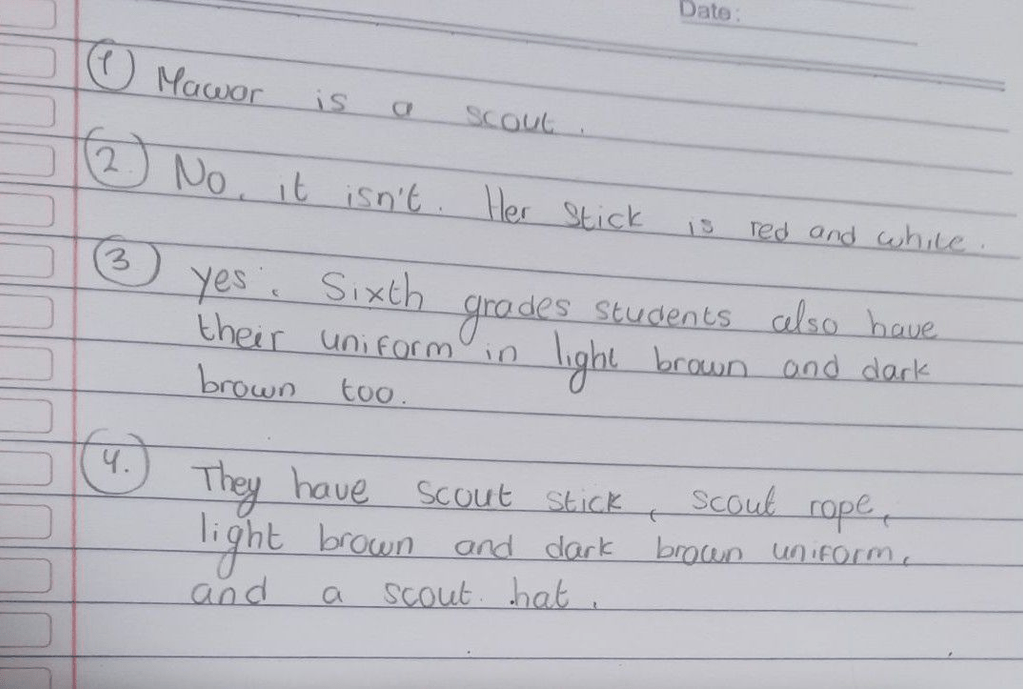 Date:
① Mawar is a scout.
② No, it isn't. Her stick is red and white.
③ yes. Sixth grades students also have
their uniform in light brown and dark
brown too.
④. They have scout stick, scout rope,
light brown and dark brown uniform,
and a scout hat.